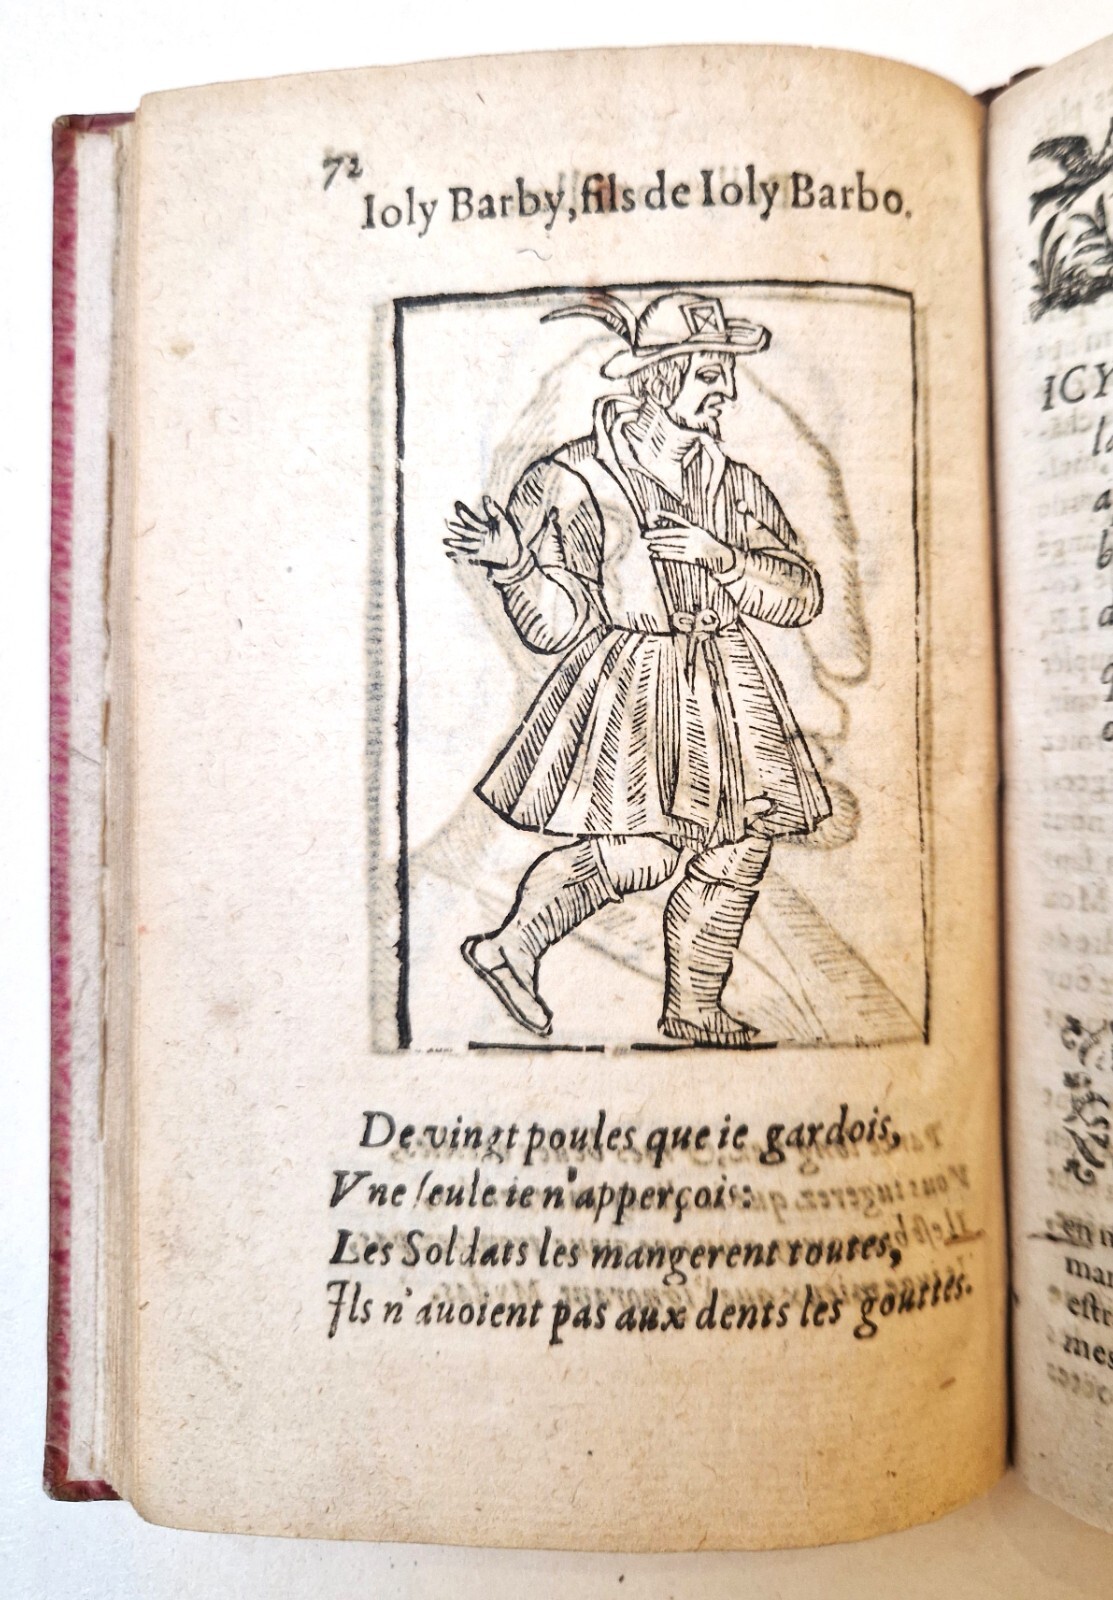 72
Ioly Barby, fils de Ioly Barbo.
De vingt poules que ie gardois,
Vne ſeule ie n'apperçois:
Les Soldats les mangerent toutes,
Ils n'auoient pas aux dents les gouttes.
ICY
en
mar
eſtr
mes